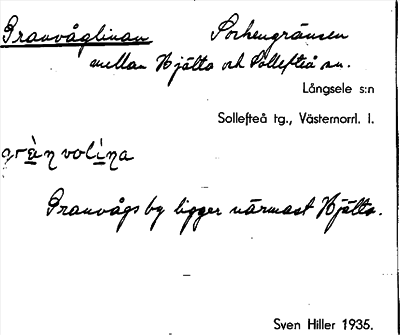 Granvåglinan Sockengränsen
mellan Hjälta och Sollefteå sn.
Långsele s:n
Sollefteå tg., Västernorrl. l.
Granvågs by ligger närmast Hjälta.
Sven Hiller 1935.